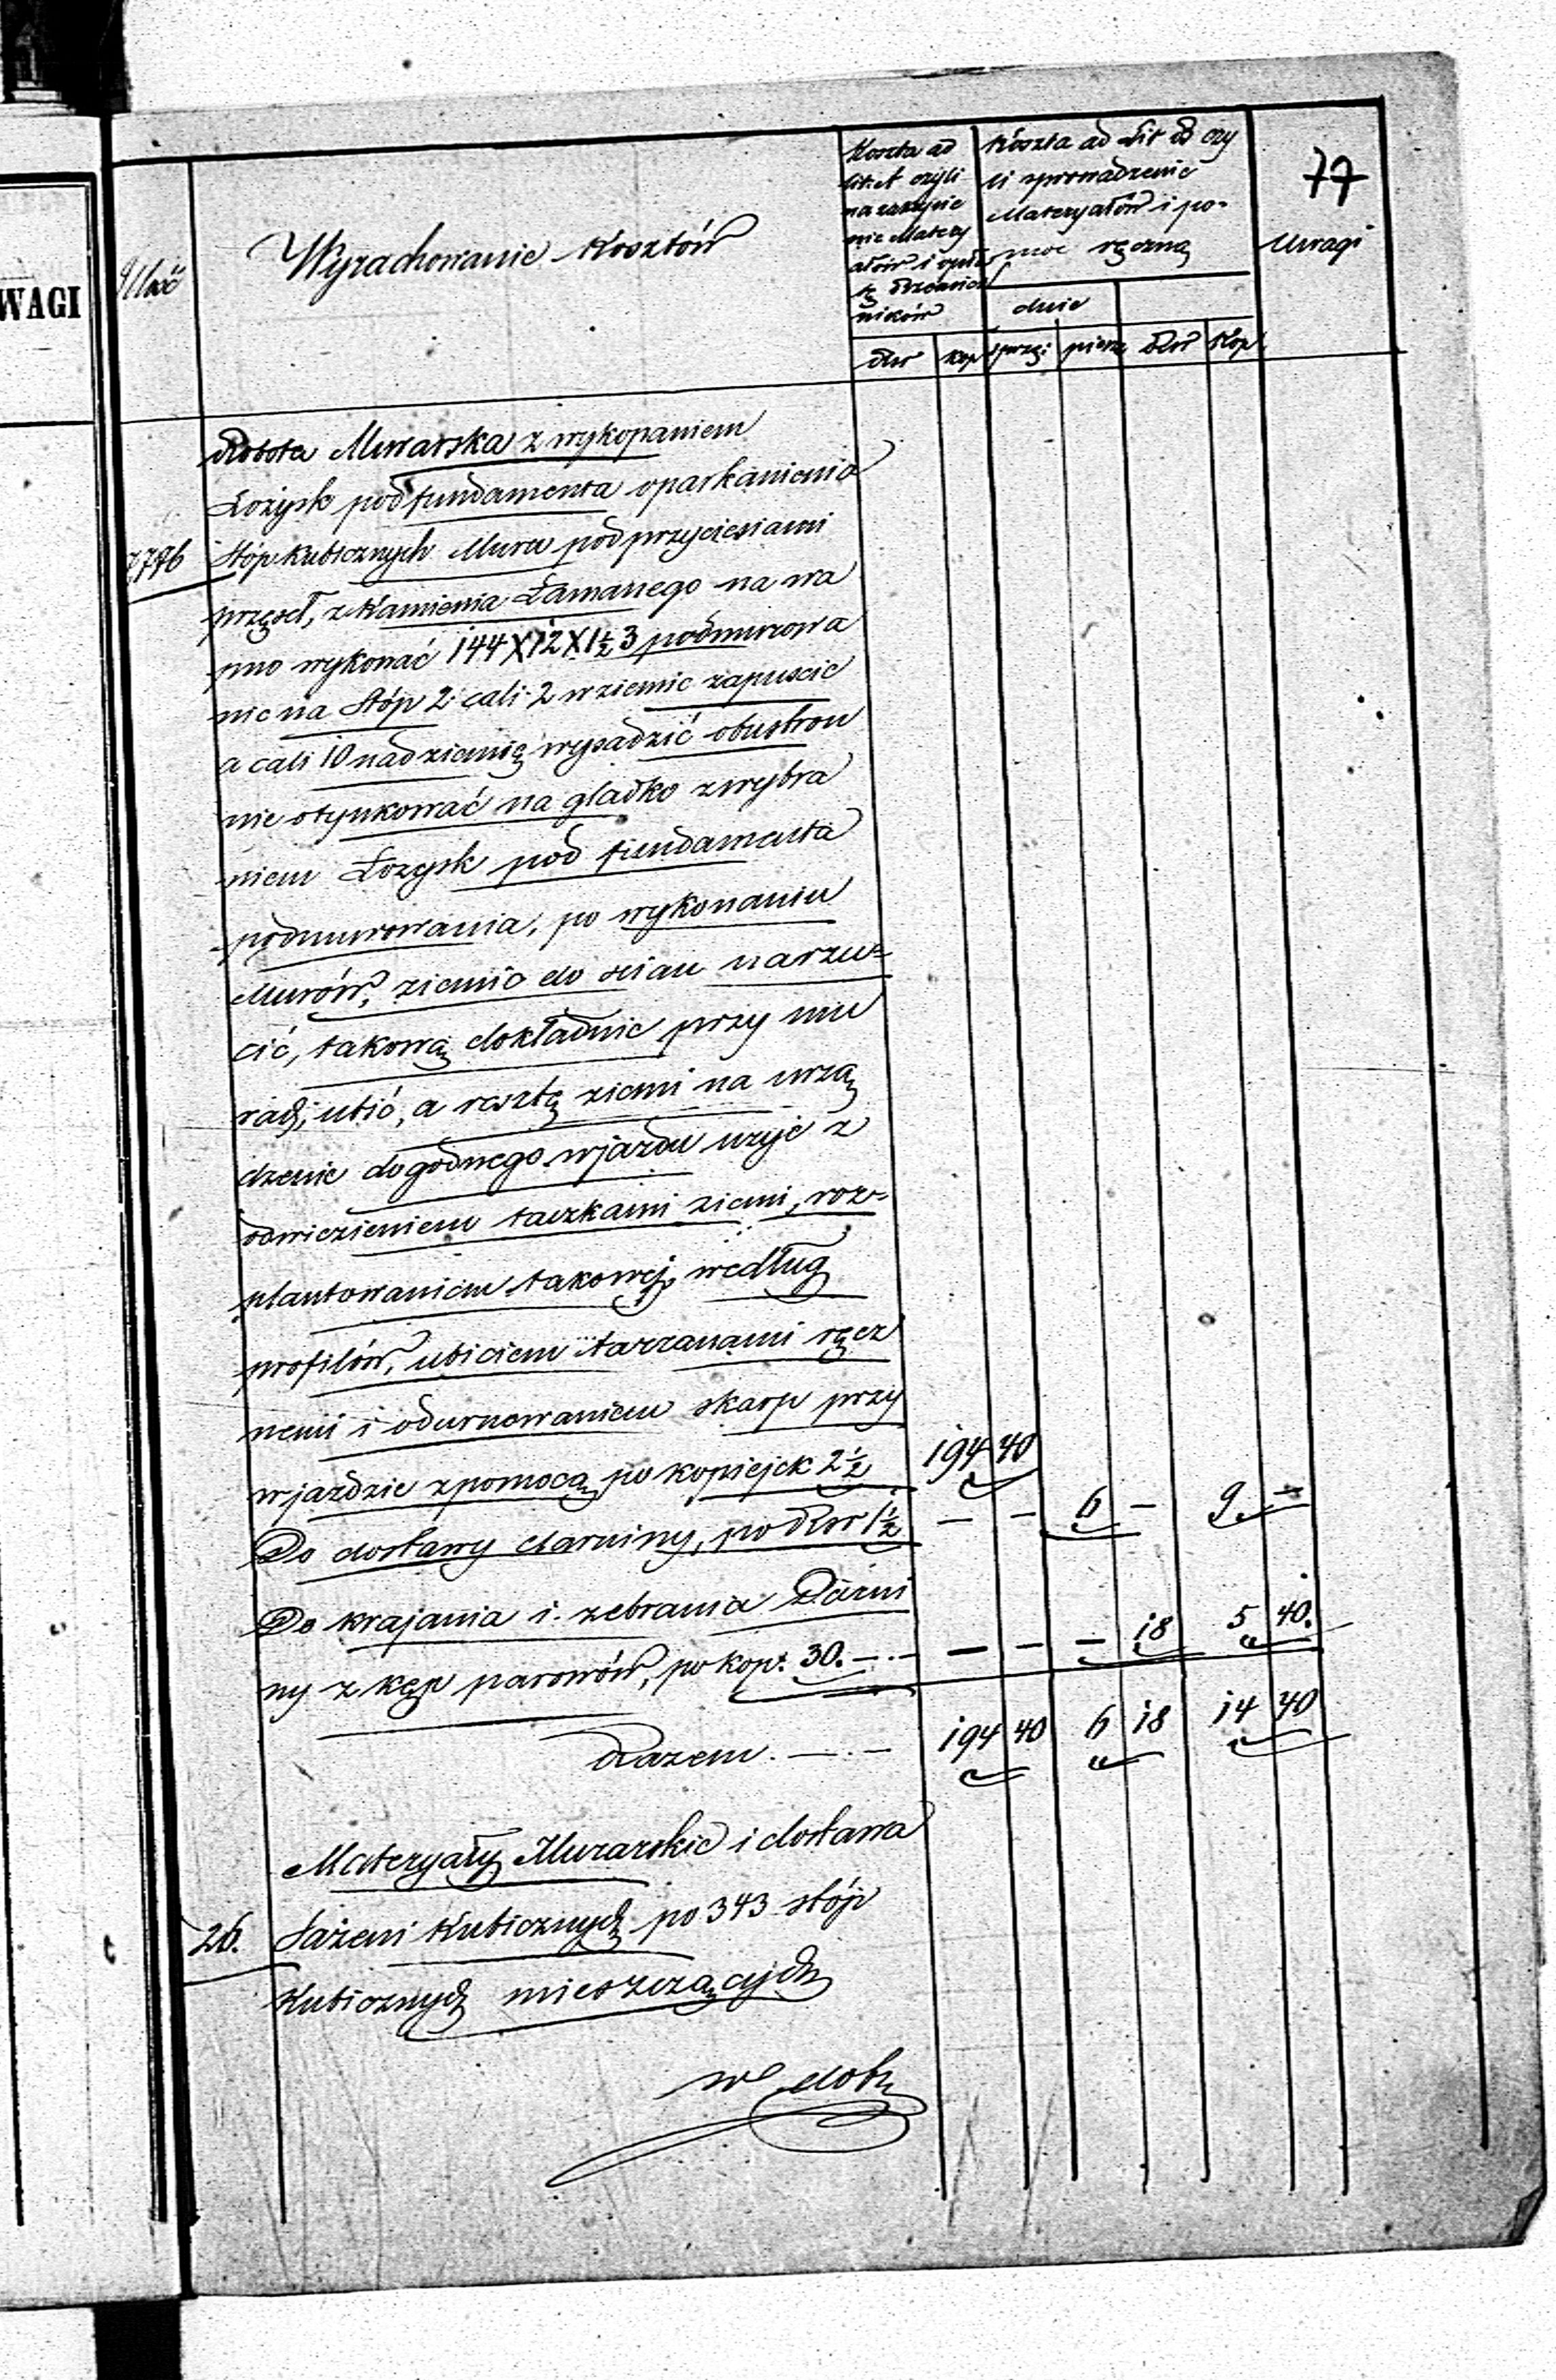 WAGI
77
Ilość
Wyrachowanie Kosztów
Koszta ad
lit. A czyli
na zakupie
nie Matery
ałów i opła
tę Rzemieśl
ników
Koszta ad Lit B czy
li sprowadzenie
Materyałów i po-
moc ręczną
Uwagi
dnie
Rsr Kop sprzę: piesz Rsr Kop
Robota Murarska z wykopaniem
Łożysk pod fundamenta oparkanienia
7776 Stóp kubicznych Muru pod przyciesiami
przęseł, z Kamienia Łamanego na wa
pno wykonać 144X12X1½ 3 podmurowa
nie na Stóp 2 cali 2 w ziemie zapuscic
a cali 10 nad ziemię wysadzić obustron
nie otynkować na gładko z wybra
niem Łozysk pod fundamenta
podmurowania, po wykonaniu
Murów, ziemie do scian narzu=
cić, takową dokładnie przy mu
rach, ubić, a resztę ziemi na urzą
dzenie dogodnego wjazdu uzyc z
odwiezieniem taczkami ziemi, roz=
plantowaniem takowej, według
profilów, ubiciem taranami ręcz
nemi i odurnowaniem skarp przy
wjazdzie z pomocą po kopiejek 2½ 194 40
Do dostawy darniny, po Rsr 1½ — — 6 — 9 —
Do krajania i zebrania Darni
ny z kęp parowów, po kop. 30. — — — — 18 5 40.
Razem. — 194 40 6 18 14 40
Materyały Murarskie i dostawa
26. Sażeni Kubicznych po 343 stóp
Kubicznych mieszczących